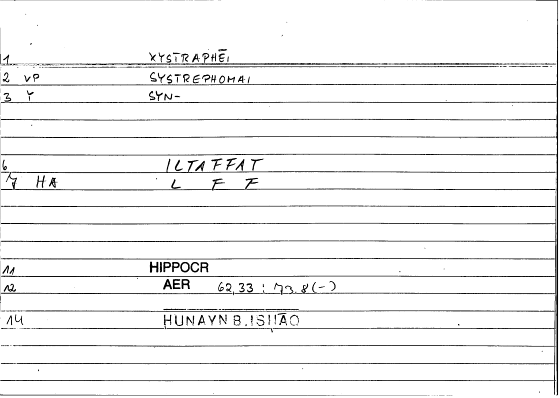 1 XYSTRAPHĒI
2 VP SYSTREPHOMAI
3 Y SYN-
6 ILTAFFAT
7 HA L F F
11 HIPPOCR
12 AER 62,33 : 73.8 (-)
14 HUNAYN B.ISḤĀQ